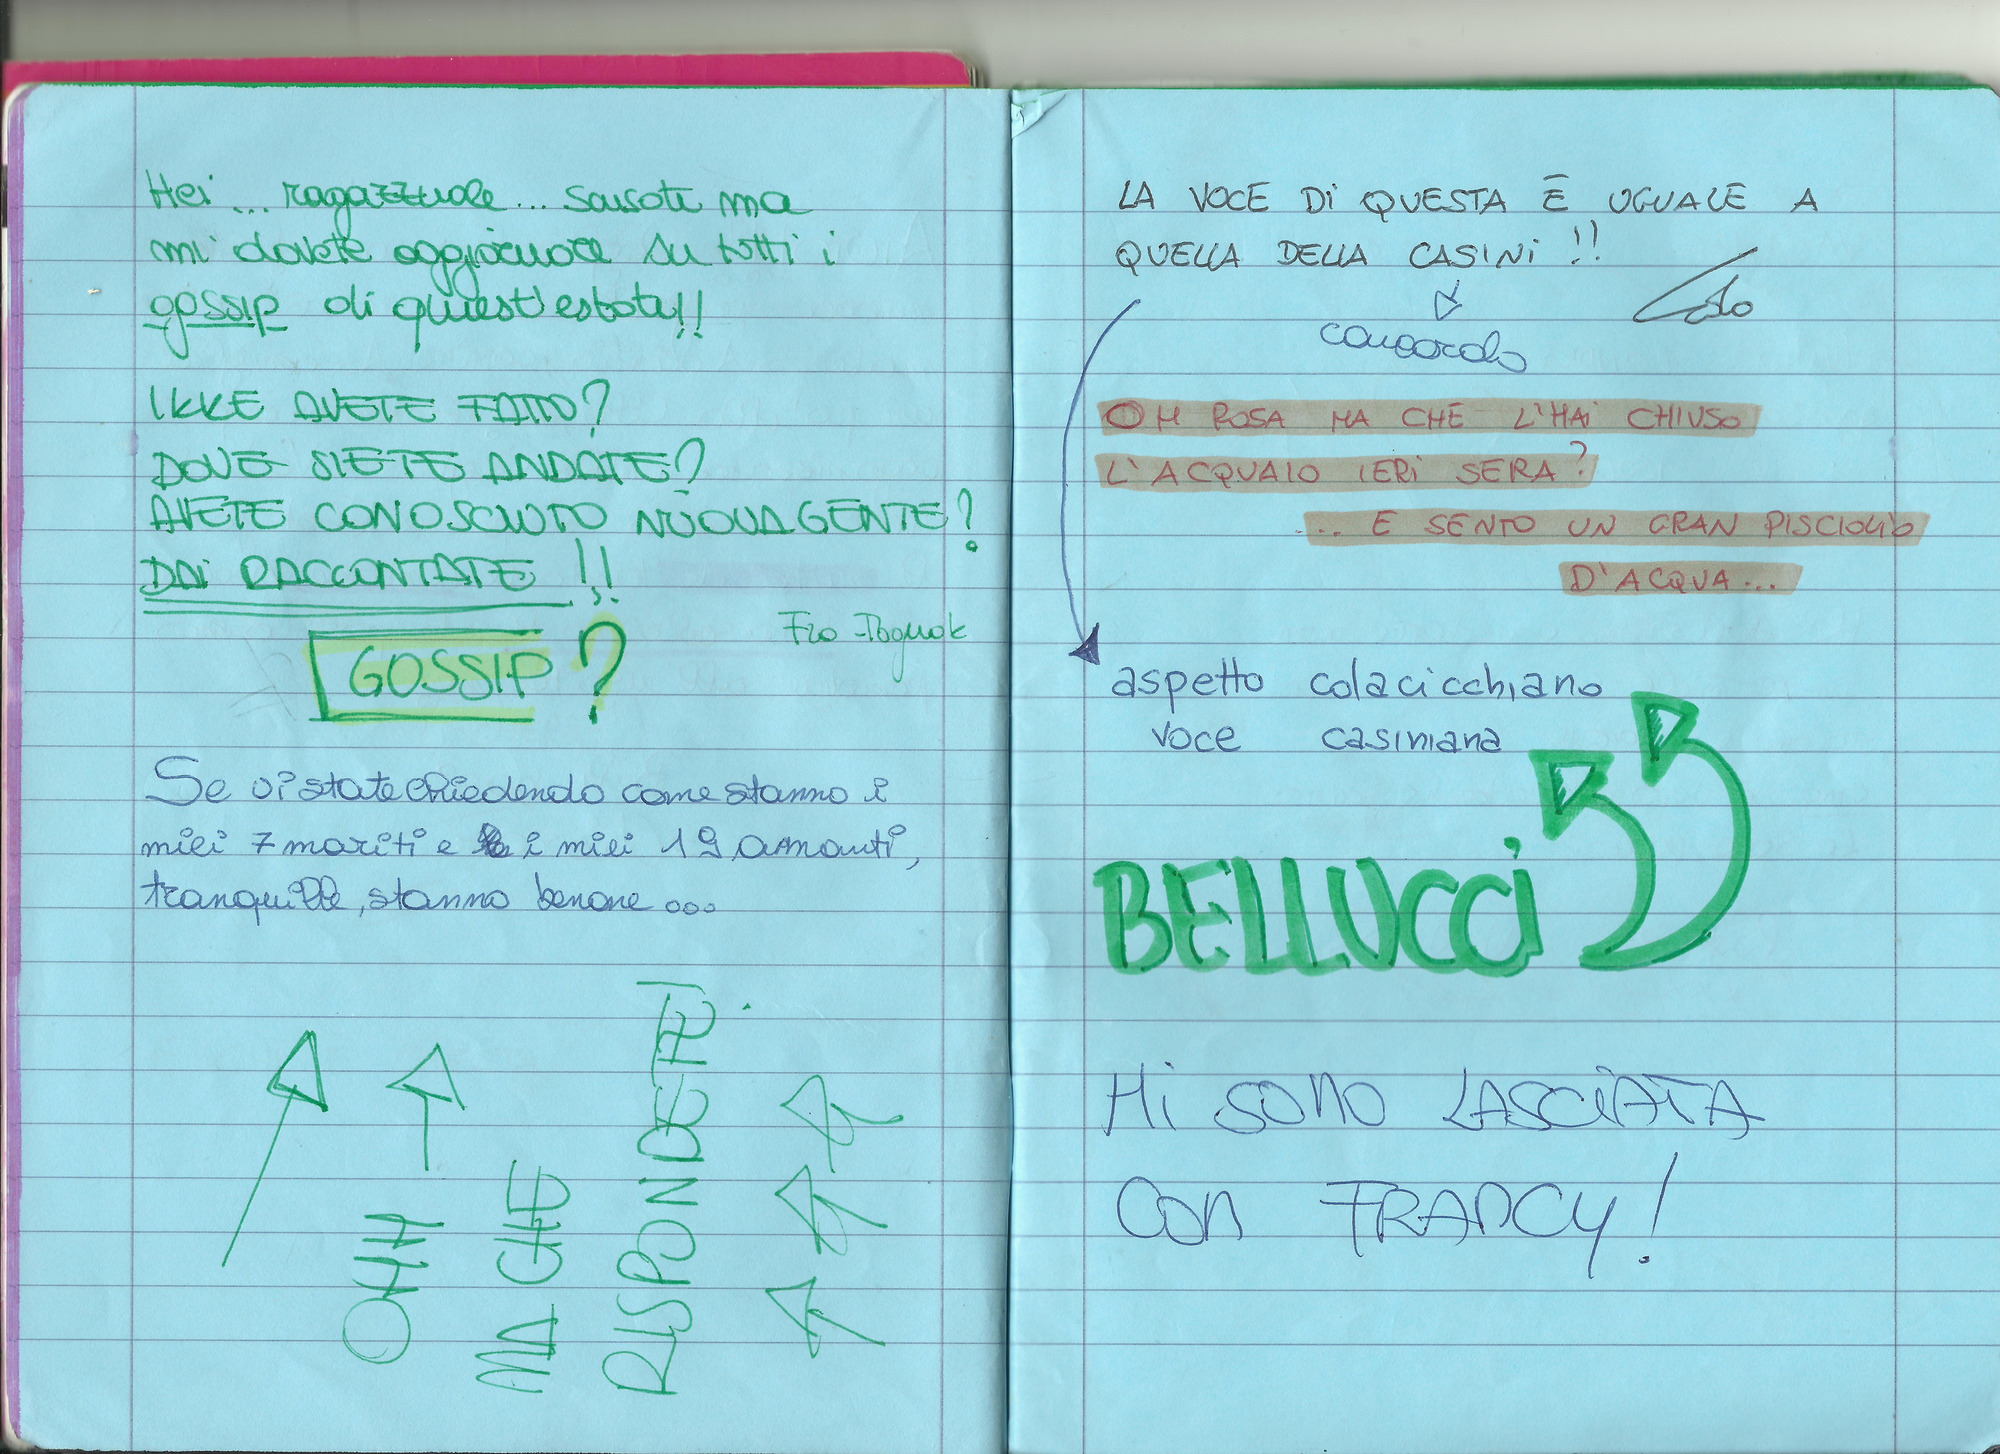 Hei... ragazzuole... scusate ma
mi dovete aggiornare su tutti i
gossip di quest'estate!!
IKKE AVETE FATTO?
DOVE SIETE ANDATE?
AVETE CONOSCIUTO NUOVA GENTE?
DAI RACCONTATE!!
GOSSIP?
Se vi state chiedendo come stanno i
miei 7 mariti e i miei 19 amanti,
tranquille, stanno benone...
OHH
MA CHE
RISPONDETE!
LA VOCE DI QUESTA È UGUALE A
QUELLA DELLA CASINI!!
concordo
OH ROSA MA CHE L'HAI CHIUSO
L'ACQUAIO IERI SERA?
... E SENTO UN GRAN PISCIOLIO
D'ACQUA...
aspetto colacicchiano
voce casiniana
BELLUCCI
MI SONO LASCIATA
CON FRANCY!